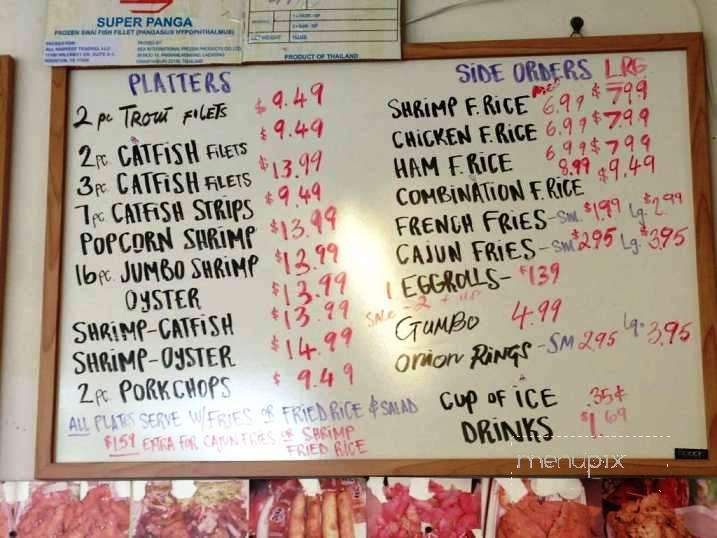 SUPER PANGA
FROZEN SWAI FISH FILLET (PANGASIUS HYPOPHTHALMUS)
PRODUCT OF THAILAND
PLATTERS
2 pc TROUT FILETS $9.49
2pc CATFISH FILETS $9.49
3pc CATFISH FILETS $13.99
7pc CATFISH STRIPS $9.49
POPCORN SHRIMP $13.99
16pc JUMBO SHRIMP $13.99
OYSTER $13.99
SHRIMP-CATFISH $13.99
SHRIMP-OYSTER $14.99
2pc PORKCHOPS $9.49
ALL PLATES SERVE W/FRIES OR FRIED RICE & SALAD
$1.59 EXTRA FOR CAJUN FRIES OR SHRIMP
FRIED RICE
SIDE ORDERS LRG
SHRIMP F. RICE med 6.99 $7.99
CHICKEN F. RICE 6.99 $7.99
HAM F. RICE 6.99 $7.99
COMBINATION F. RICE 8.99 $9.49
FRENCH FRIES - SM. $1.99 Lg. $2.99
CAJUN FRIES - SM $2.95 Lg. $3.95
1 EGGROLLS - $1.39
GUMBO 4.99
ONION RINGS - SM 2.95 Lg. 3.95
CUP OF ICE .35¢
DRINKS $1.69
menupix